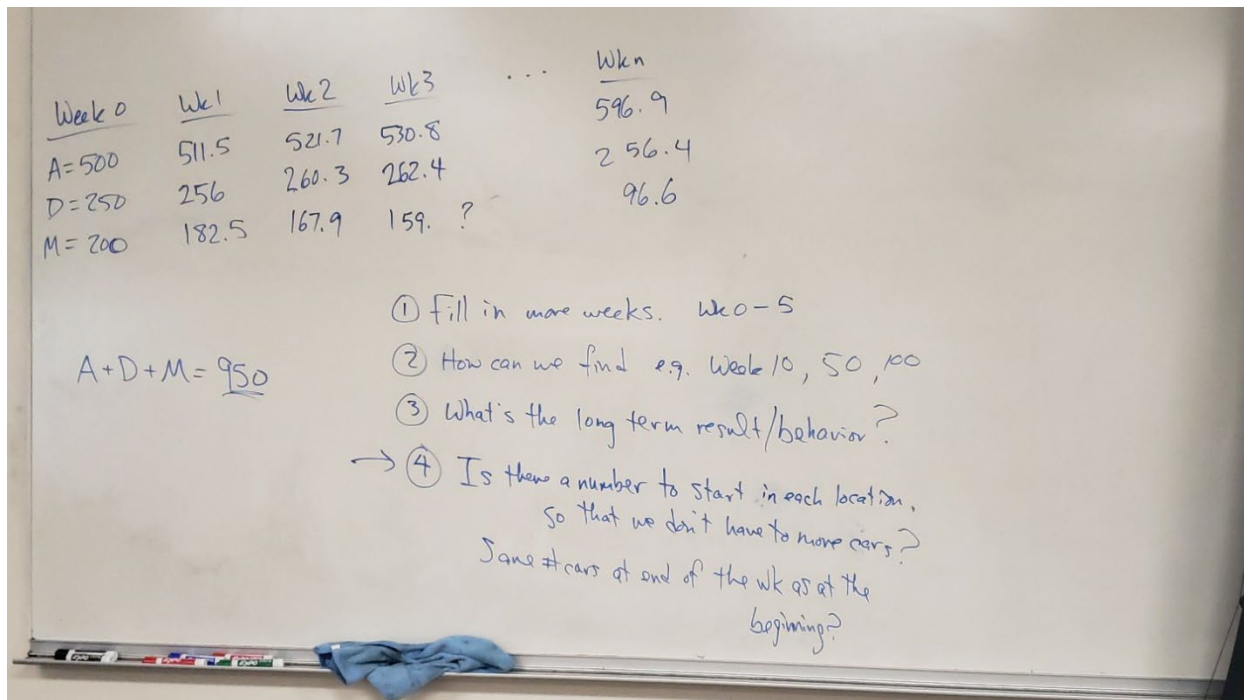 Week 0 Wk1 Wk2 Wk3 ... Wkn
A=500 511.5 521.7 530.8 596.9
D=250 256 260.3 262.4 256.4
M=200 182.5 167.9 159. ? 96.6
① Fill in more weeks. Wk0-5
A+D+M=950
② How can we find e.g. Week 10, 50, 100
③ What's the long term result/behavior?
→ ④ Is there a number to start in each location,
so that we don't have to move cars?
Same # cars at end of the wk as at the
beginning?
EXPO